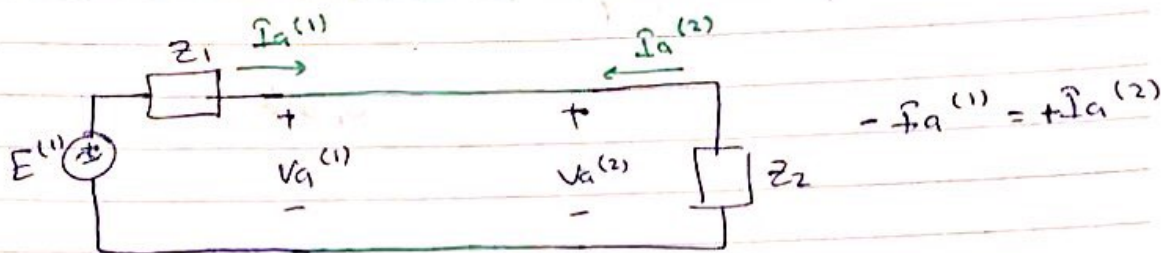 Ia^(1)
Ia^(2)
Z1
+
+
- Ia^(1) = +Ia^(2)
E^(1)
Va^(1)
Va^(2)
Z2
-
-